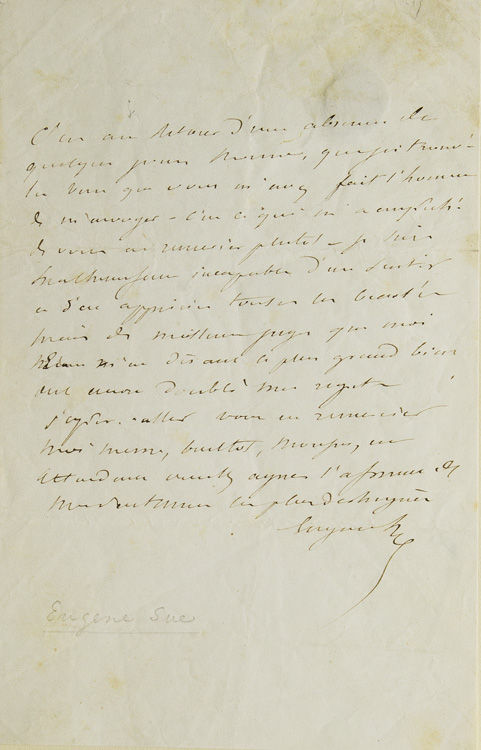 C'est au retour d'une absence de
quelques jours Monsieur, que j'ai trouvé
les vers que vous m'avez fait l'honneur
de m'envoyer - c'est ce qui m'a empêché
de vous en remercier plutot - je suis
malheureusement incapable d'en sentir
et d'en apprécier toutes les beautés
mais de meilleurs juges que moi
m'en disant le plus grand bien
ont encore doublé mes regrets
j'espère aller vous en remercier
moi meme, bientot, Monsieur, en
attendant veuillez agréer l'assurance de
mes sentiments les plus distingués
Eugène Sue
Eugene Sue